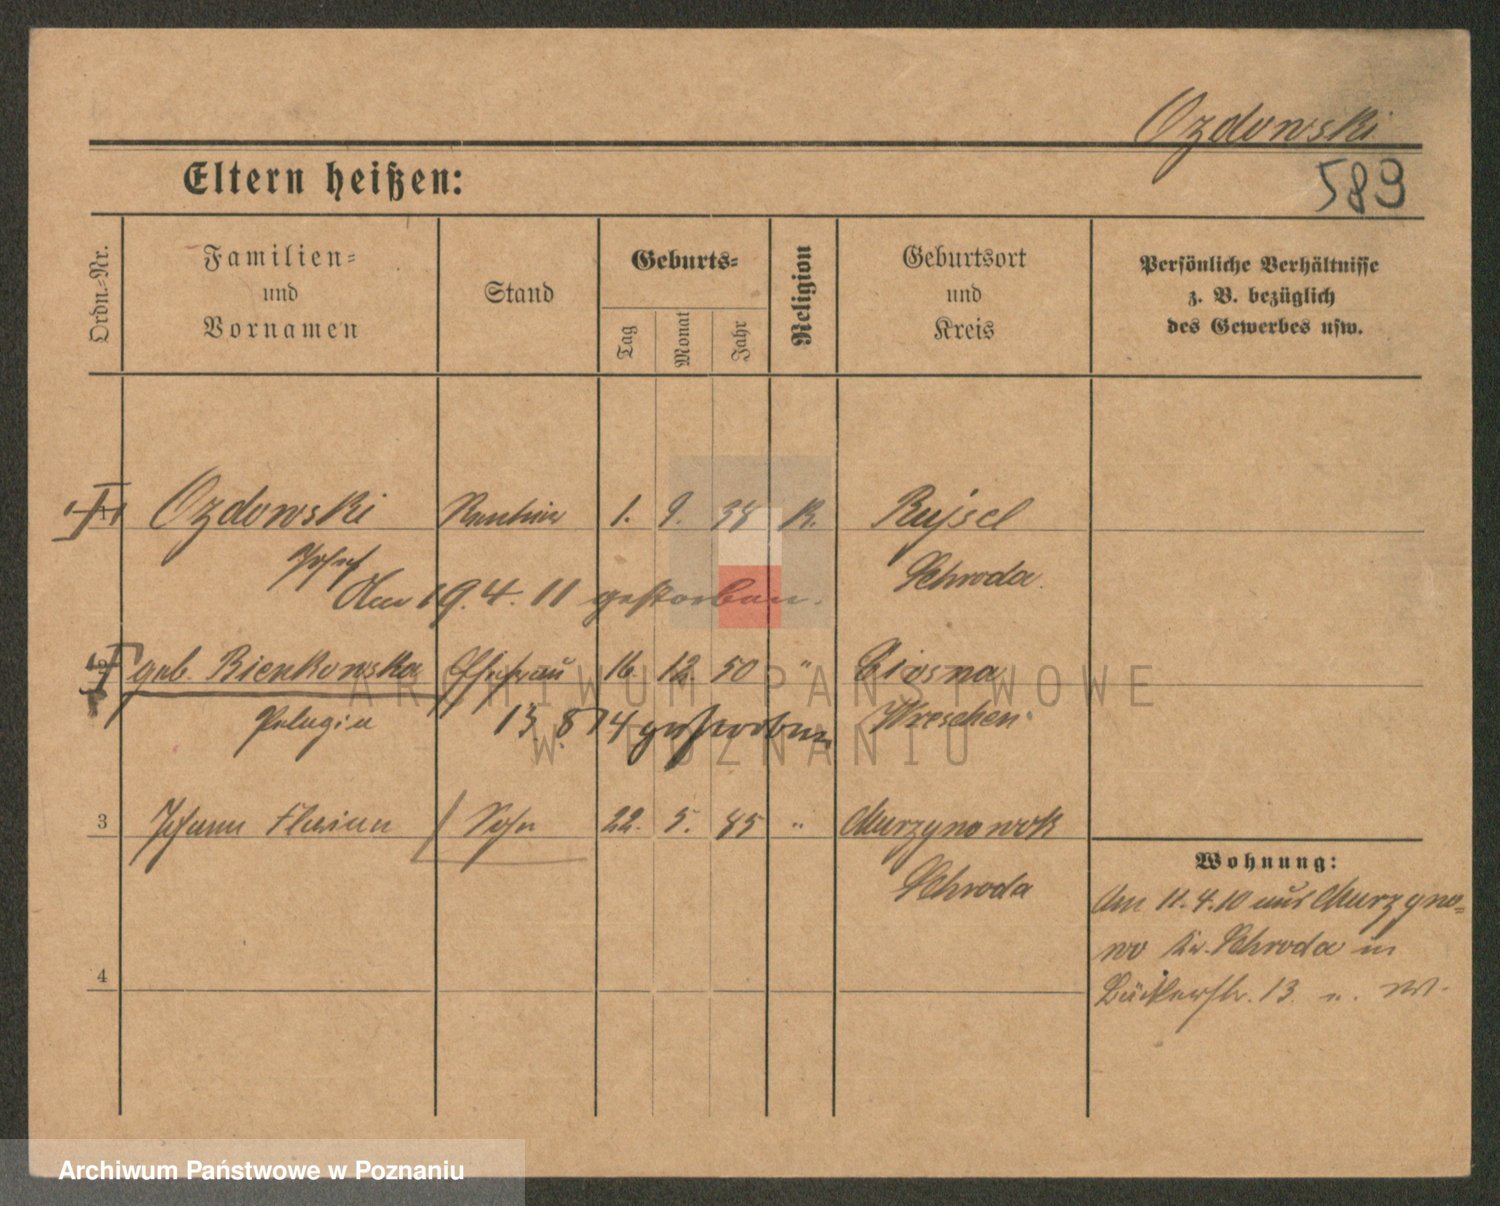 Ozdowski
589
Eltern heißen:
Ordn.-Nr.
Familien-
und
Vornamen
Stand
Geburts-
Tag
Monat
Jahr
Religion
Geburtsort
und
Kreis
Persönliche Verhältnisse
z. B. bezüglich
des Gewerbes usw.
1 Ozdowski Rentier 1. 9. 38 K.
Josef Schroda
Am 19.4.11 gestorben.
2 geb. Bienkowska Ehefrau 16. 12. 50 " Ciosna
Pelagia Wreschen
13. 8 14 gestorben
3 Johann Florian Sohn 22. 5. 85 " Murzynowok
Schroda
Wohnung:
Am 11.4.10 aus Murzyno-
wo Kr. Schroda in
Bäckerstr. 13. n. W.
4
ARCHIWUM PAŃSTWOWE
W POZNANIU
Archiwum Państwowe w Poznaniu